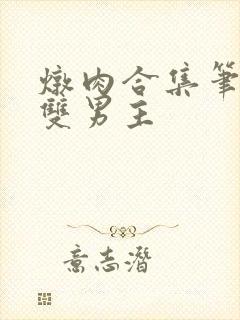 燉肉合集筆
雙男主
意志潛